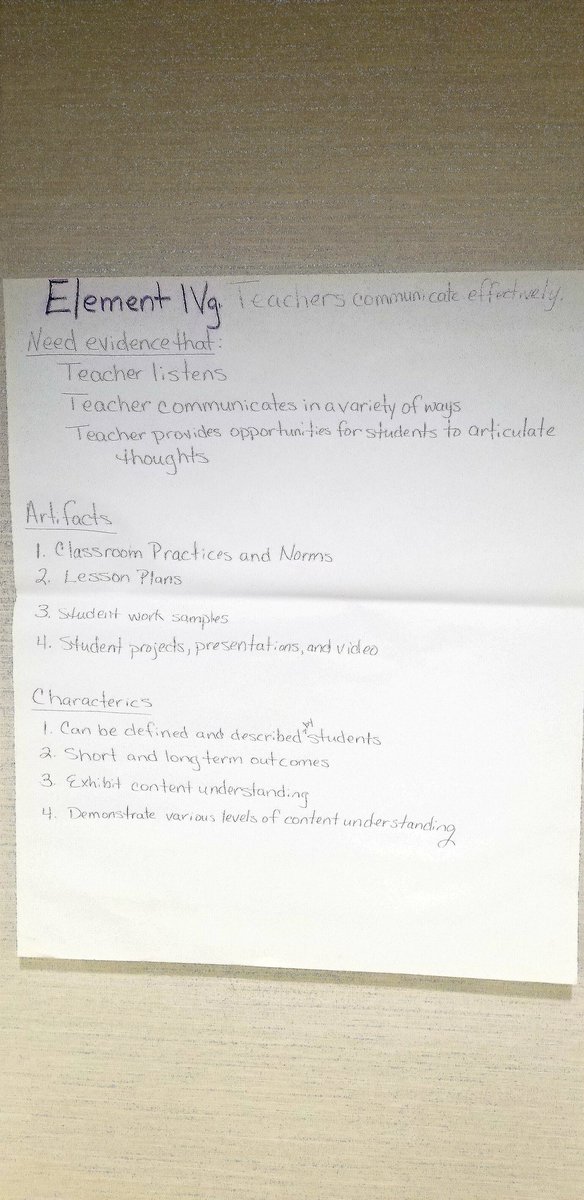 Element IVg. Teachers communicate effectively.
Need evidence that:
Teacher listens
Teacher communicates in a variety of ways
Teacher provides opportunities for students to articulate
thoughts
Artifacts
1. Classroom Practices and Norms
2. Lesson Plans
3. Student work samples
4. Student projects, presentations, and video
Characterics
1. Can be defined and described students
2. Short and long term outcomes
3. Exhibit content understanding
4. Demonstrate various levels of content understanding